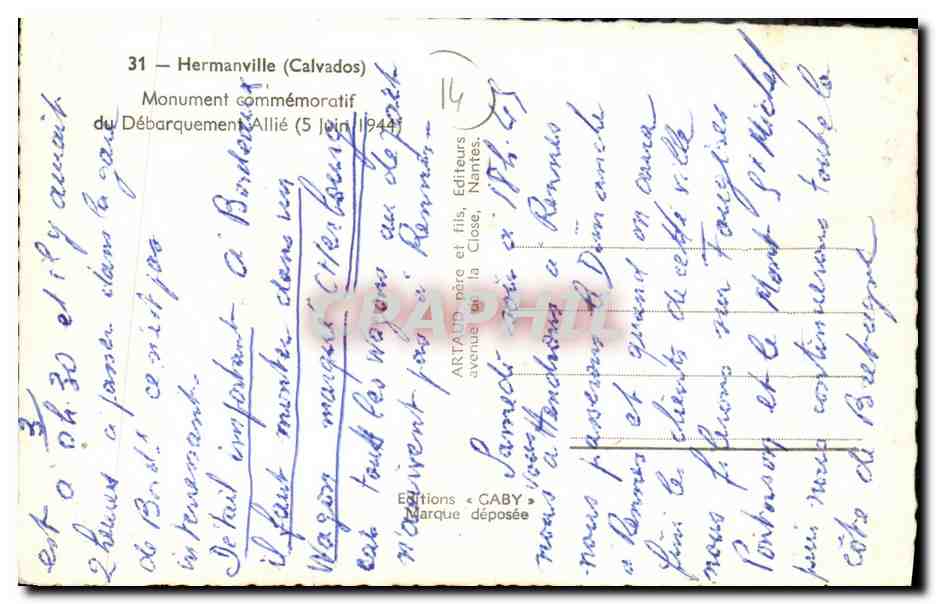 31 — Hermanville (Calvados)
Monument commémoratif
du Débarquement Allié (5 Juin 1944)
14
ARTAUD père et fils, Editeurs
avenue de la Close, Nantes.
Editions « GABY »
Marque déposée
CPAPHIL
3
est à 0h.30 et il y aurait
2 heures à passer dans la gare
de Bord. ce n'est pas
intéressant.
Détail important à Bordeaux
il faut monter dans un
Wagon marqué Cherbourg
car tous les Wagons au départ
n'arrivent pas à Rennes -
Samedi soir à 18h.45
nous attendrons à Rennes
nous passerons le Dimanche
à Rennes et quand on aura
fini les clients de cette ville
nous filerons sur Fougères
Pontorson et le Mont St Michel
puis nous continuerons toute la
côte de Bretagne